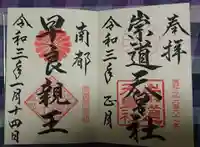 奉拝
崇道天皇社
令和三年正月
南都
早良親王
令和三年一月十四日